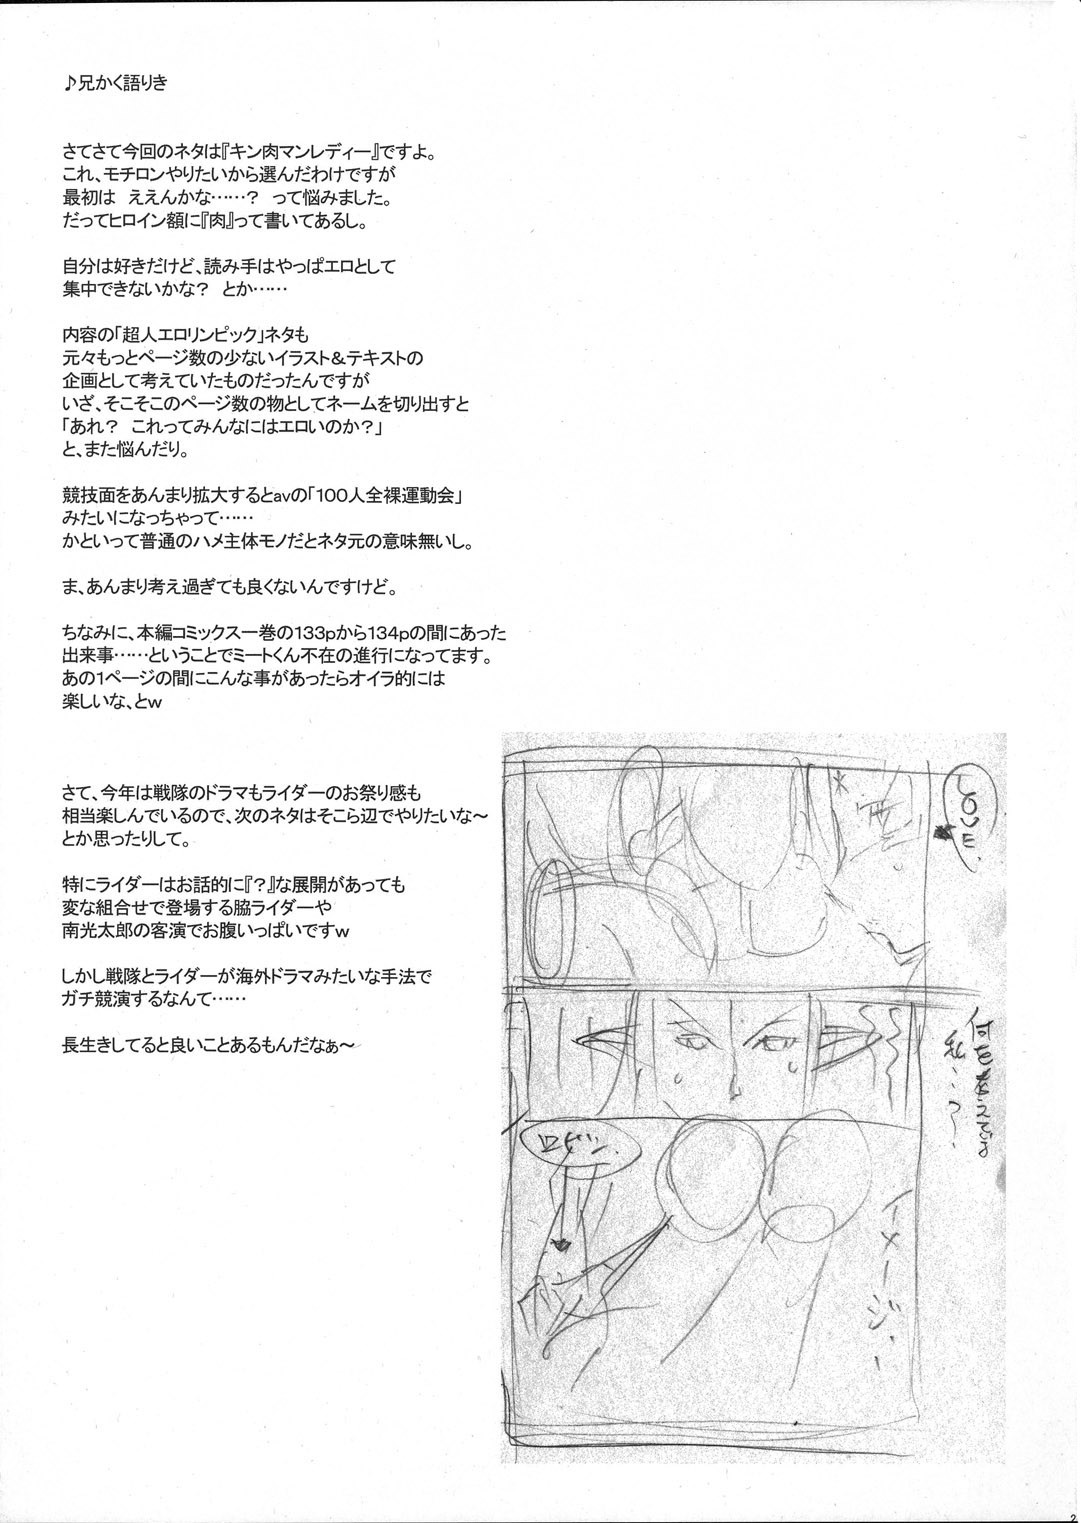 ♪兄かく語りき
さてさて今回のネタは『キン肉マンレディー』ですよ。
これ、モチロンやりたいから選んだわけですが
最初は　ええんかな……？　って悩みました。
だってヒロイン額に『肉』って書いてあるし。
自分は好きだけど、読み手はやっぱエロとして
集中できないかな？　とか……
内容の「超人エロリンピック」ネタも
元々もっとページ数の少ないイラスト＆テキストの
企画として考えていたものだったんですが
いざ、そこそこのページ数の物としてネームを切り出すと
「あれ？　これってみんなにはエロいのか？」
と、また悩んだり。
競技面をあんまり拡大するとavの「100人全裸運動会」
みたいになっちゃって……
かといって普通のハメ主体モノだとネタ元の意味無いし。
ま、あんまり考え過ぎても良くないんですけど。
ちなみに、本編コミックス一巻の133pから134pの間にあった
出来事……ということでミートくん不在の進行になってます。
あの1ページの間にこんな事があったらオイラ的には
楽しいな、とw
さて、今年は戦隊のドラマもライダーのお祭り感も
相当楽しんでいるので、次のネタはそこら辺でやりたいな～
とか思ったりして。
特にライダーはお話的に『？』な展開があっても
変な組合せで登場する脇ライダーや
南光太郎の客演でお腹いっぱいですw
しかし戦隊とライダーが海外ドラマみたいな手法で
ガチ競演するなんて……
長生きしてると良いことあるもんだなぁ～
LOVE.
私…?
ロビン.
イメージ.
2